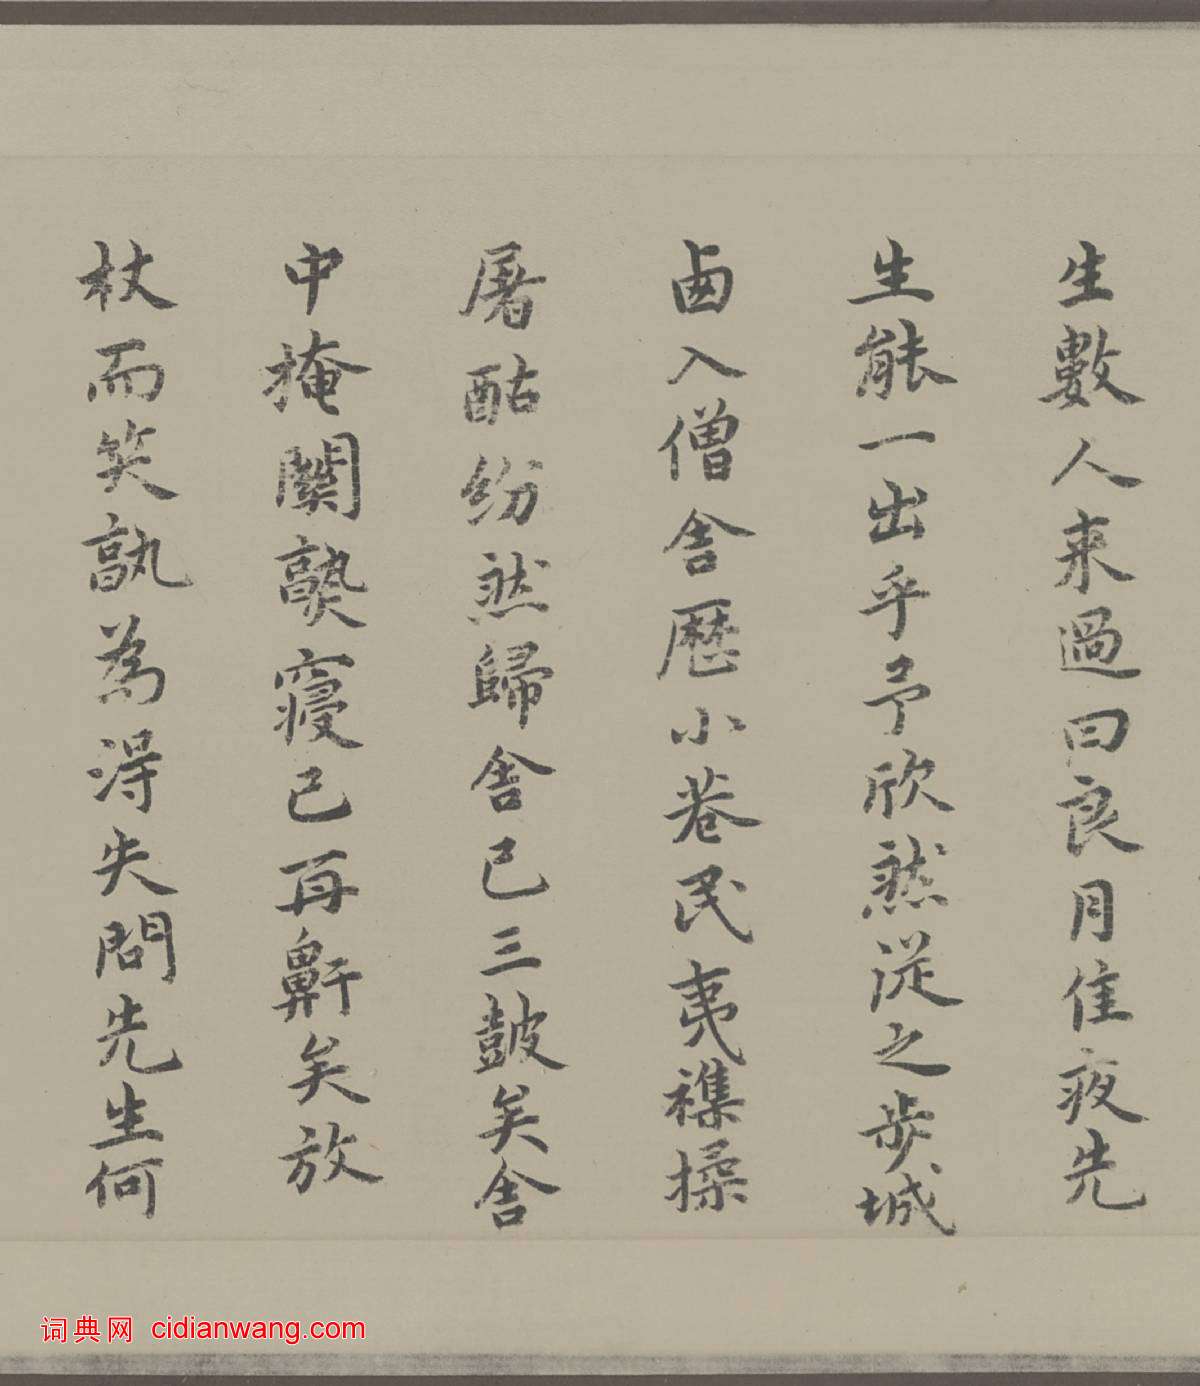 生數人来過曰良月佳夜先
生能一出乎予欣然從之步城
西入僧舍歷小巷民夷襍揉
屠酤紛然歸舍已三鼓矣舍
中掩關熟寢已再鼾矣放
杖而笑孰為得失問先生何
词典网 cidianwang.com